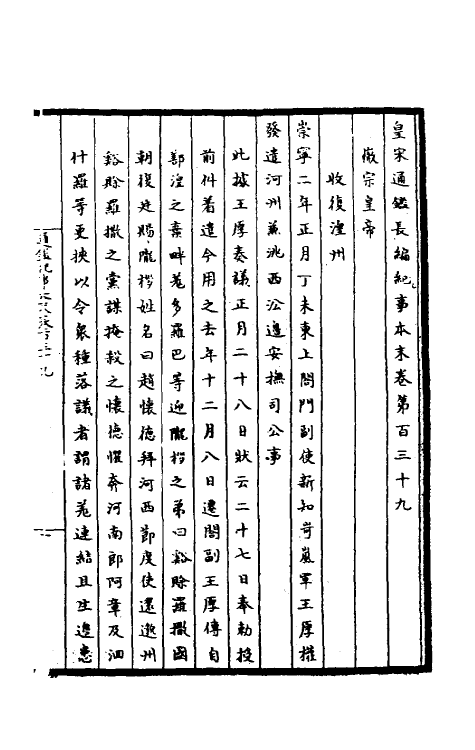 皇宋通鑑長編紀事本末卷第百三十九
徽宗皇帝
收復湟州
崇寧二年正月丁未東上閤門副使新知岢嵐軍王厚權
發遣河州兼洮西沿邊安撫司公事
此據王厚奏議正月二十八日狀云二十七日奉勅授
前件差遣今用之去年十二月八日遷閤副王厚傳自
鄯湟之棄畔羌多羅巴等迎隴拶之弟曰谿賒羅撒國
朝復㢟賜隴拶姓名曰趙懷德拜河西節度使還邈州
谿賒羅撒之黨謀掩殺之懷德懼奔河南郎阿章及洄
什羅等更挾以令衆種落議者謂諸羌連結且生邊患